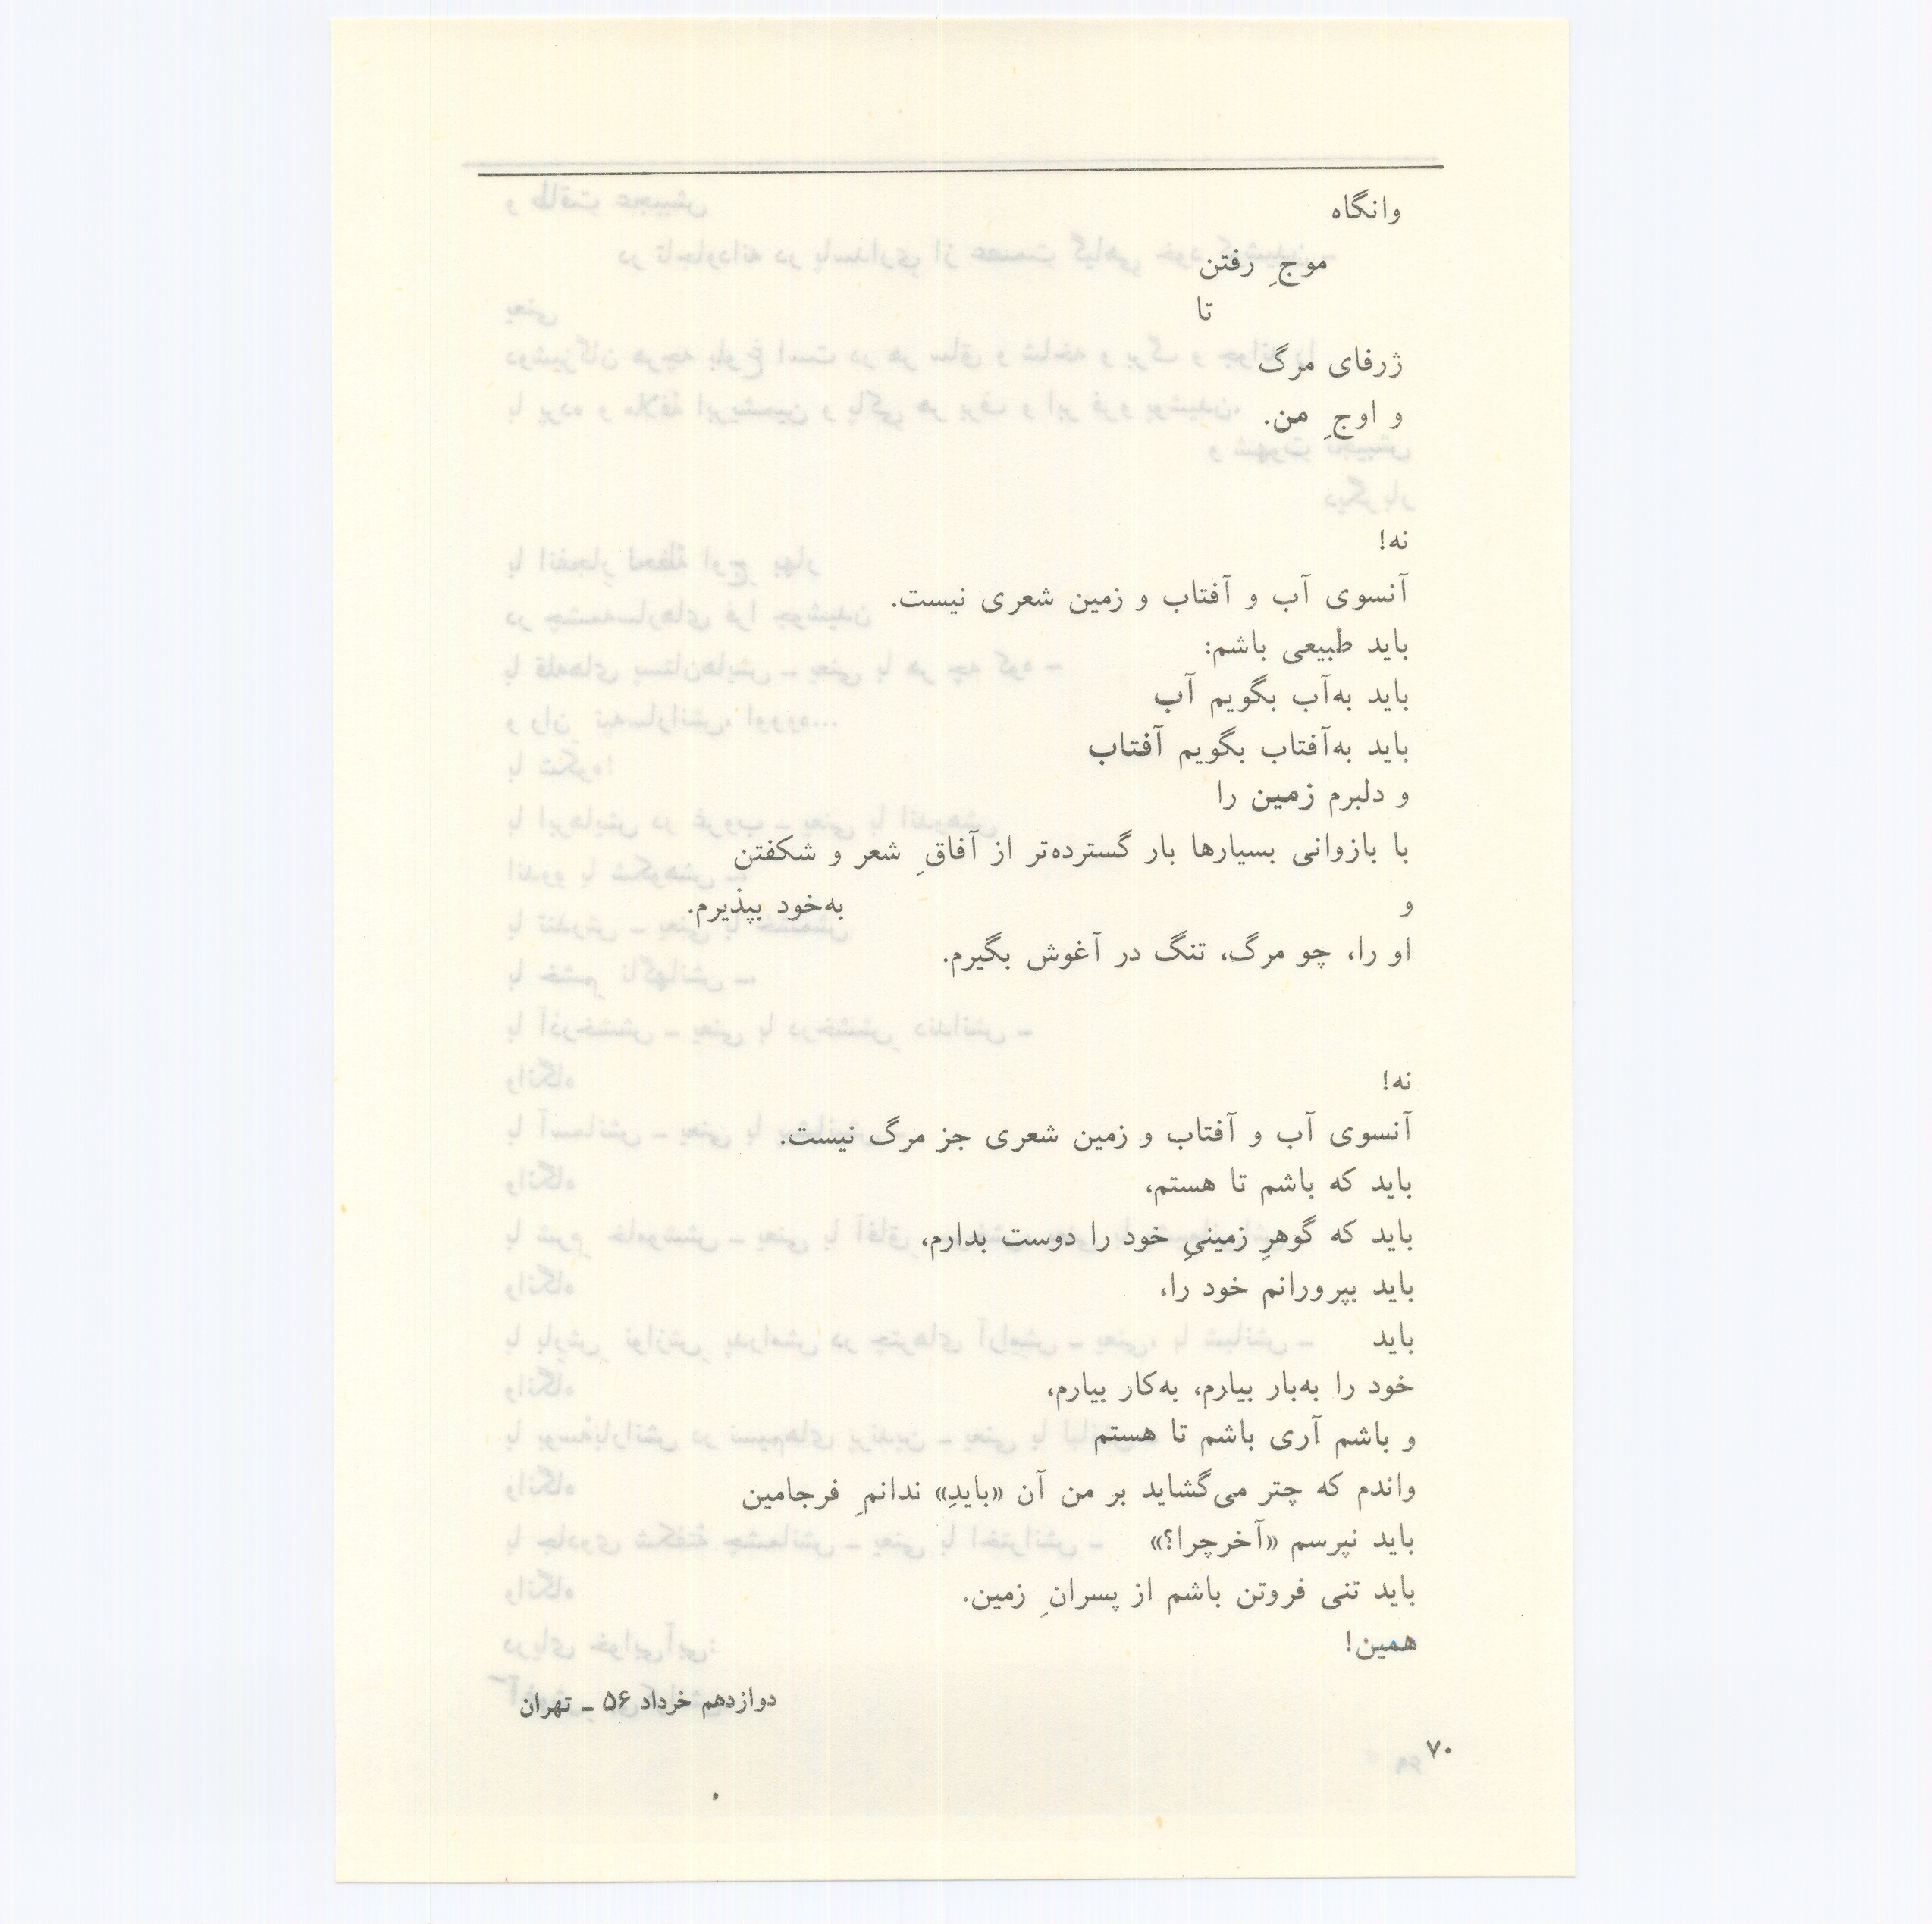 وانگاه
موجِ رفتن
تا
ژرفای مرگ
و اوجِ من.
نه!
آنسوی آب و آفتاب و زمین شعری نیست.
باید طبیعی باشم:
باید به‌آب بگویم آب
باید به‌آفتاب بگویم آفتاب
و دلبرم زمین را
با بازوانی بسیارها بار گسترده‌تر از آفاقِ شعر و شکفتن
و به‌خود بپذیرم.
او را، چو مرگ، تنگ در آغوش بگیرم.
نه!
آنسوی آب و آفتاب و زمین شعری جز مرگ نیست.
باید که باشم تا هستم،
باید که گوهرِ زمینیِ خود را دوست بدارم،
باید بپرورانم خود را،
باید
خود را به‌بار بیارم، به‌کار بیارم،
و باشم آری باشم تا هستم
واندم که چتر می‌گشاید بر من آن «بایدِ» ندانمِ فرجامین
باید نپرسم «آخرچرا؟»
باید تنی فروتن باشم از پسرانِ زمین.
همین!
دوازدهم خرداد ۵۶ ـ تهران
۷۰